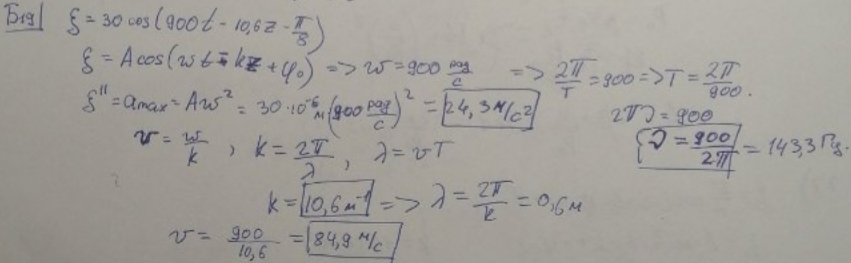 Б1д9 ξ = 30 cos(900t - 10,6z - π/3)
ξ = A cos(ωt - kz + φ₀) => ω = 900 рад/с => 2π/T = 900 => T = 2π/900.
ξ'' = a max = Aω² = 30·10⁻⁶ м (900 рад/с)² = 24,3 м/с²
2πν = 900
v = ω/k, k = 2π/λ, λ = vT
ν = 900/2π = 143,3 Гц.
k = 10,6 м⁻¹ => λ = 2π/k = 0,6 м
v = 900/10,6 = 84,9 м/с